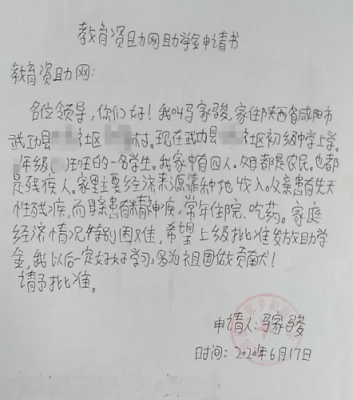 教育资助网助学金申请书
教育资助网:
各位领导,你们好!我叫马家骏,家住陕西省咸阳市
武功县 社区 村。现在武功县 社区初级中学上学。
年级( )班的一名学生。我家中有四人。父母都是农民。也都
是残疾人。家里主要经济来源靠种地收入。父亲患有先天
性残疾,而母亲患有精神疾,常年住院、吃药。家庭
经济情况特别困难,希望上级批准发放助学
金,我以后一定好好学习,多为祖国做贡献!
请予批准。
申请人:马家骏
时间:2020年6月17日